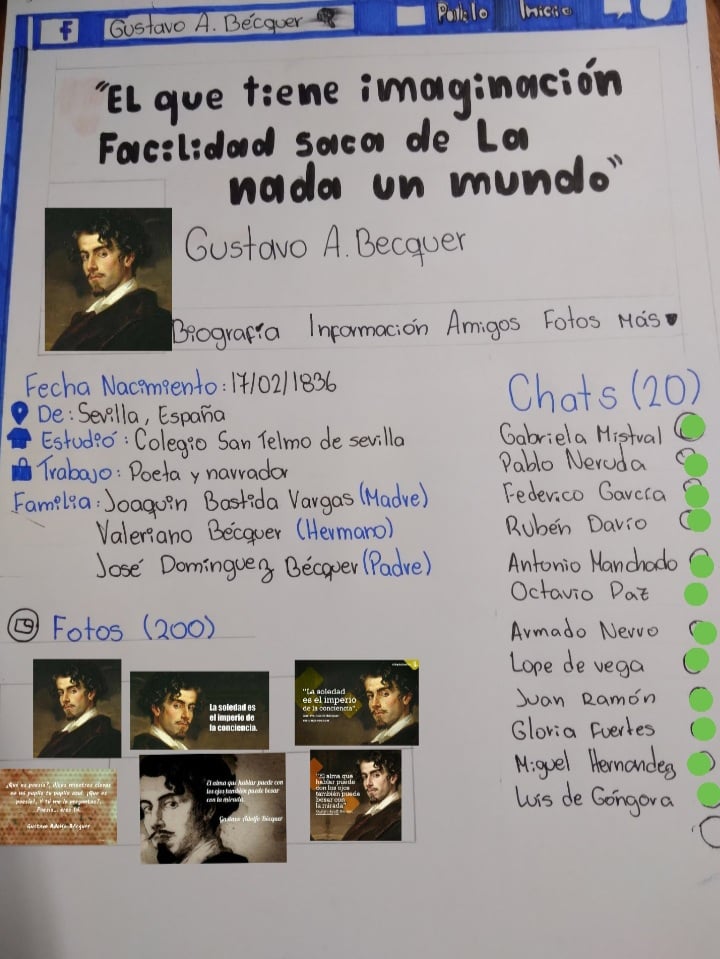 f Gustavo A. Bécquer Pablo Inicio
"EL que tiene imaginación
Facilidad saca de La
nada un mundo"
Gustavo A. Becquer
Biografía Información Amigos Fotos Más
Fecha Nacimiento: 17/02/1836
De: Sevilla, España
Estudió: Colegio San Telmo de sevilla
Trabajo: Poeta y narrador
Familia: Joaquin Bastida Vargas (Madre)
Valeriano Bécquer (Hermano)
José Domínguez Bécquer (Padre)
Chats (20)
Gabriela Mistral
Pablo Neruda
Federico García
Rubén Darío
Antonio Manchado
Octavio Paz
Armado Nervo
Lope de vega
Juan Ramón
Gloria Fuertes
Miguel Hernandez
Luis de Góngora
Fotos (200)
La soledad es
el imperio de
la conciencia.
"La soledad
es el imperio
de la conciencia".
¿Qué es poesía?, dices mientras clavas
en mi pupila tu pupila azul, ¡Que es
poesía!, Y tú me lo preguntas?,
Poesía... eres tú.
Gustavo Adolfo Bécquer
El alma que hablar puede con
los ojos también puede besar
con la mirada.
Gustavo Adolfo Bécquer
"El alma que
hablar puede
con los ojos
también puede
besar con
la mirada"